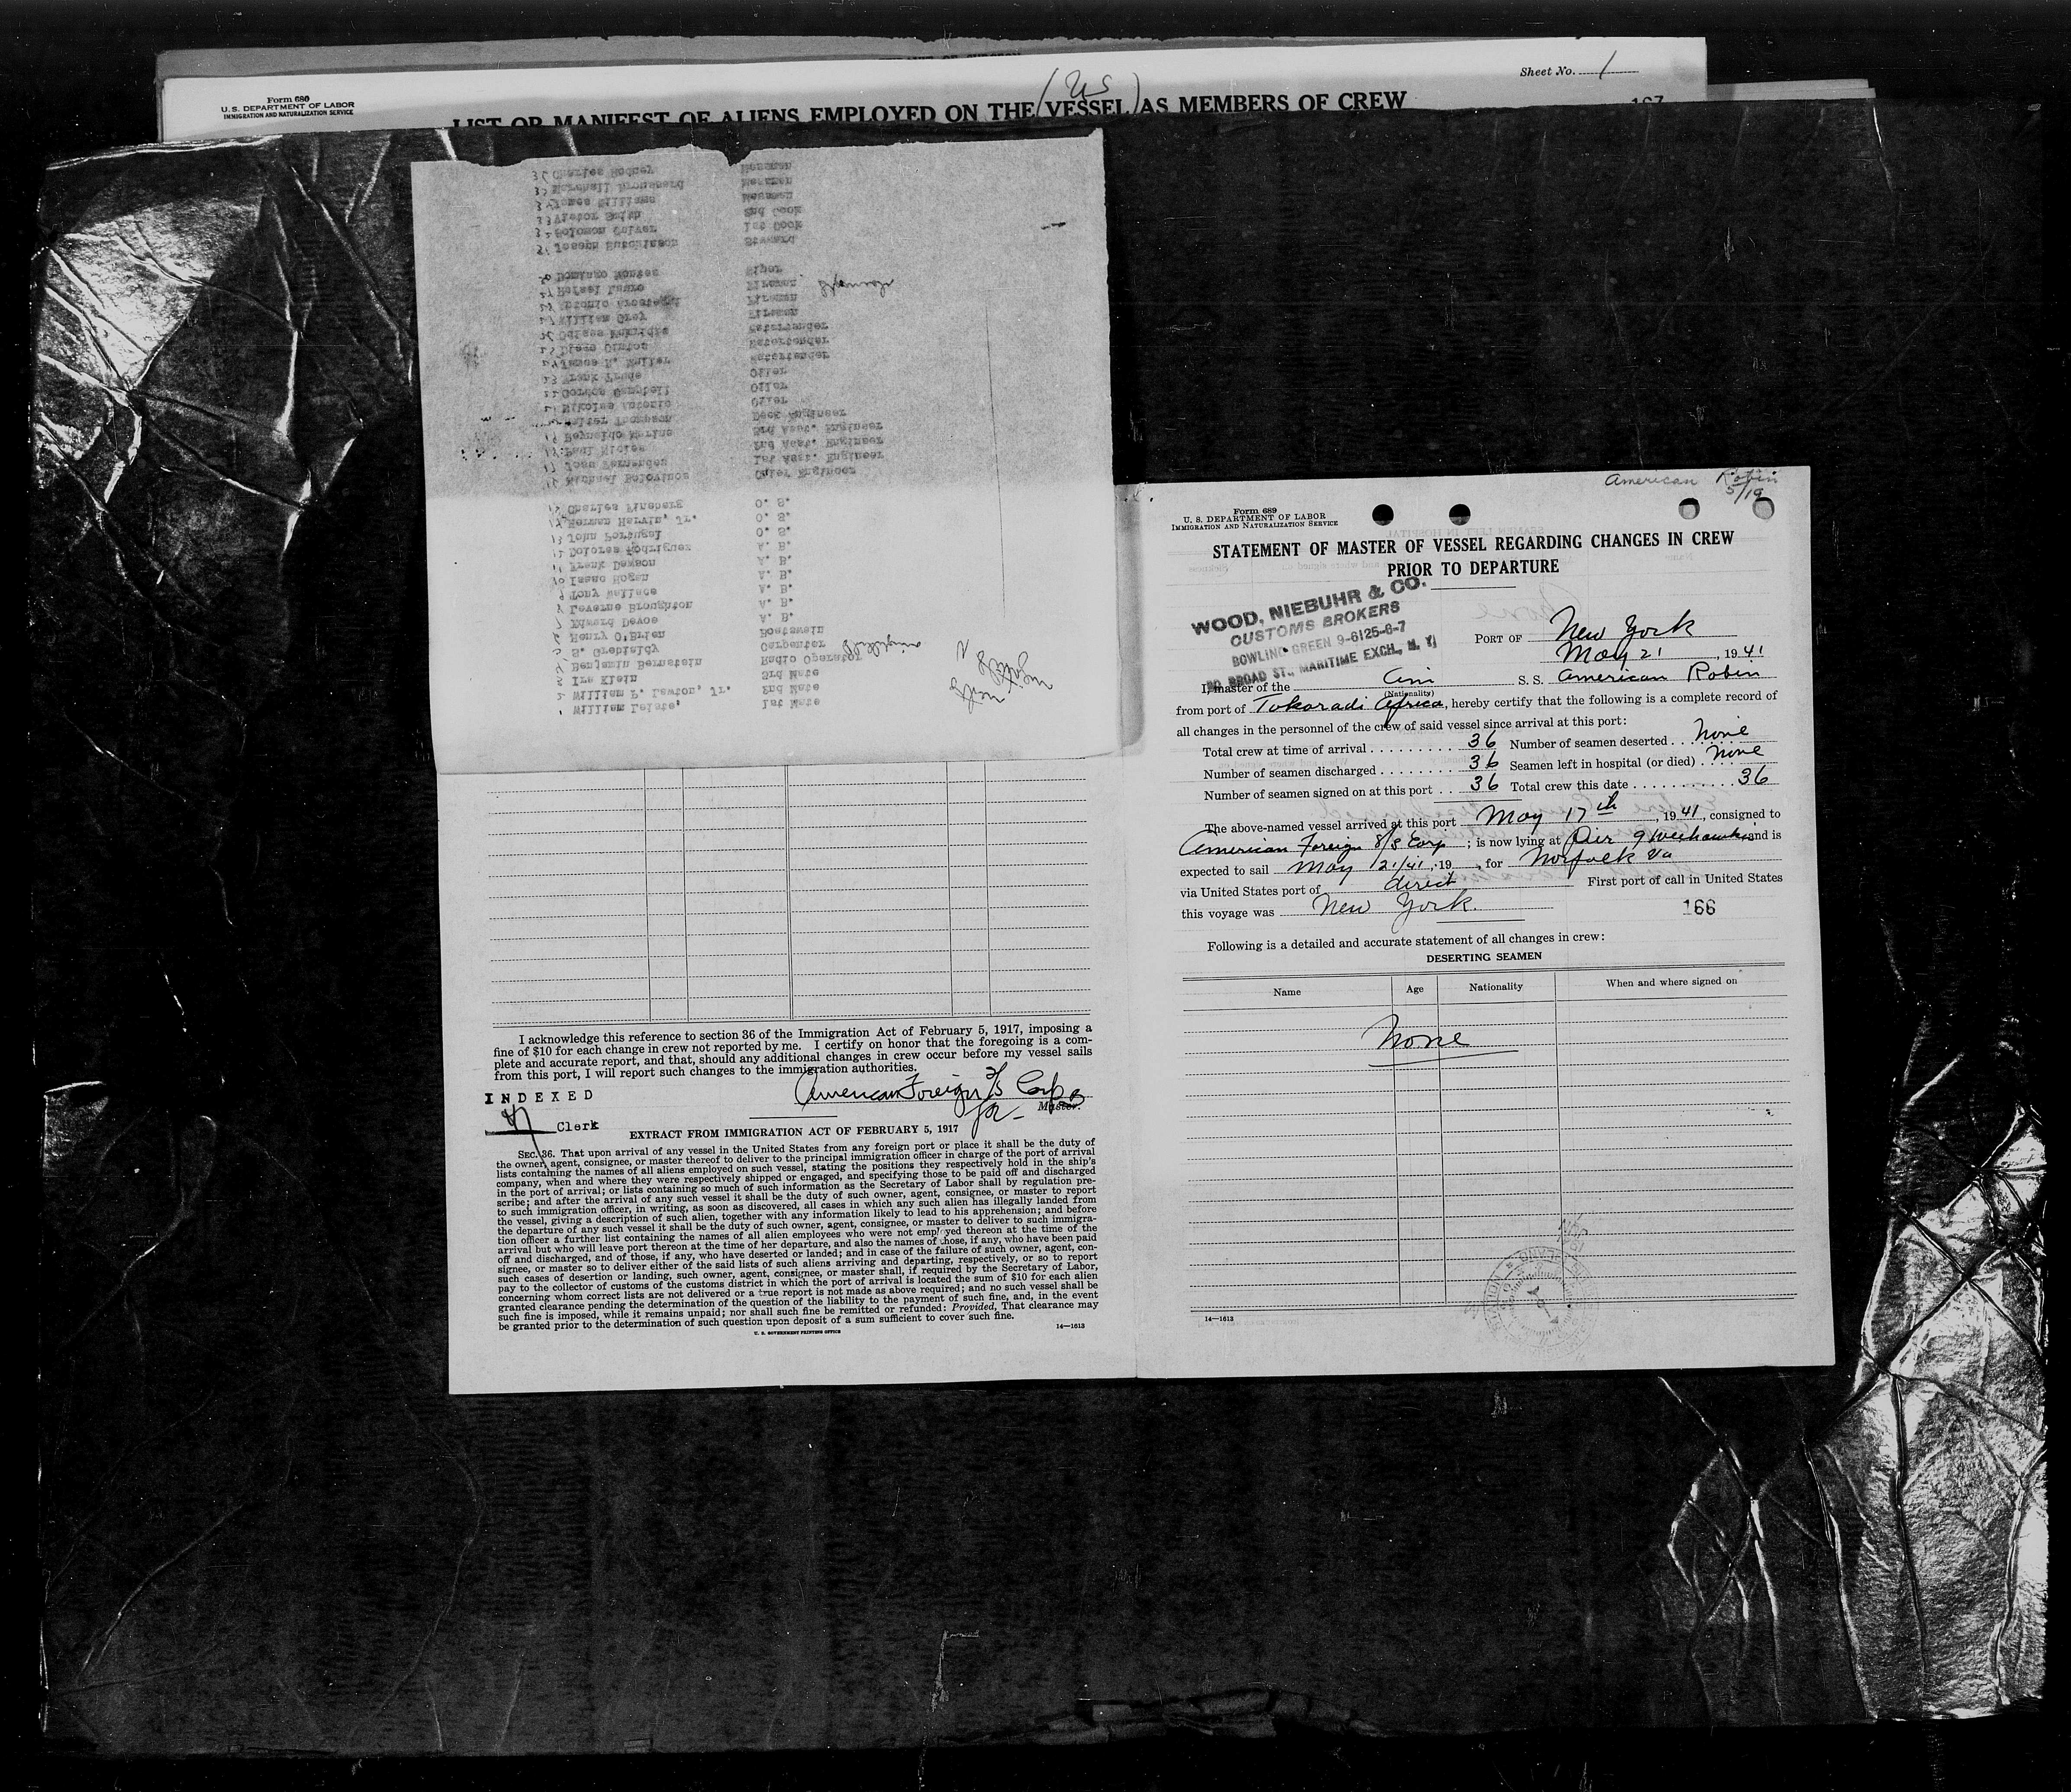 Form 686
U. S. DEPARTMENT OF LABOR
IMMIGRATION AND NATURALIZATION SERVICE
Sheet No. 1
(US)
LIST OR MANIFEST OF ALIENS EMPLOYED ON THE VESSEL AS MEMBERS OF CREW
167
1 William Leiate, 1st Mate
2 William P. Lawton, Jr. 2nd Mate
3 Ira Klein 3rd Mate
4 Benjamin Bernstein Radio Operator
5 S. Grebialdy Carpenter
6 Henry O'Brien Boatswain
7 Edward Devoe A. B.
8 Laverne Broughton A. B.
9 Tony Wallace A. B.
10 Isaac Hogan A. B.
11 Frank Dawson A. B.
12 Dolores Rodriguez A. B.
13 John Portugal O. S.
14 Herman Marvin, Jr. O. S.
15 Charles Fineberg O. S.
16 Michael Bolovinos Chief Engineer
17 John Fernandez 1st Asst. Engineer
18 Paul 2nd Asst. Engineer
19 Reynaldo Marine 3rd Asst. Engineer
Walter Thompson Deck Engineer
21 Nikolas Antonio Oiler
22 Gordon Campbell Oiler
23 Frank Oiler
24 James R. Watertender
25 Watertender
26 Watertender
27 William Grey Fireman
28 Antonio Fireman
29 Rafael Fireman
30 Domingo Montes Wiper
31 Joseph Hutchinson Steward
32 Solomon Culver 1st Cook
33 Victor Smith 2nd Cook
34 James Williams Messman
35 Marshall Broussard Messman
36 Charles Rodney Messman
I acknowledge this reference to section 36 of the Immigration Act of February 5, 1917, imposing a
fine of $10 for each change in crew not reported by me. I certify on honor that the foregoing is a com-
plete and accurate report, and that, should any additional changes in crew occur before my vessel sails
from this port, I will report such changes to the immigration authorities.
American Foreign S/S Corp
Master.
INDEXED
Clerk
EXTRACT FROM IMMIGRATION ACT OF FEBRUARY 5, 1917
SEC. 36. That upon arrival of any vessel in the United States from any foreign port or place it shall be the duty of
the owner, agent, consignee, or master thereof to deliver to the principal immigration officer in charge of the port of arrival
lists containing the names of all aliens employed on such vessel, stating the positions they respectively hold in the ship's
company, when and where they were respectively shipped or engaged, and specifying those to be paid off and discharged
in the port of arrival; or lists containing so much of such information as the Secretary of Labor shall by regulation pre-
scribe; and after the arrival of any such vessel it shall be the duty of such owner, agent, consignee, or master to report
to such immigration officer, in writing, as soon as discovered, all cases in which any such alien has illegally landed from
the vessel, giving a description of such alien, together with any information likely to lead to his apprehension; and before
the departure of any such vessel it shall be the duty of such owner, agent, consignee, or master to deliver to such immigra-
tion officer a further list containing the names of all alien employees who were not employed thereon at the time of the
arrival but who will leave port thereon at the time of her departure, and also the names of those, if any, who have been paid
off and discharged, and of those, if any, who have deserted or landed; and in case of the failure of such owner, agent, con-
signee, or master so to deliver either of the said lists of such aliens arriving and departing, respectively, or so to report
such cases of desertion or landing, such owner, agent, consignee, or master shall, if required by the Secretary of Labor,
pay to the collector of customs of the customs district in which the port of arrival is located the sum of $10 for each alien
concerning whom correct lists are not delivered or a true report is not made as above required; and no such vessel shall be
granted clearance pending the determination of the question of the liability to the payment of such fine, and, in the event
such fine is imposed, while it remains unpaid; nor shall such fine be remitted or refunded: Provided, That clearance may
be granted prior to the determination of such question upon deposit of a sum sufficient to cover such fine.
U. S. GOVERNMENT PRINTING OFFICE
14—1613
American Robin
5/19
Form 689
U. S. DEPARTMENT OF LABOR
IMMIGRATION AND NATURALIZATION SERVICE
STATEMENT OF MASTER OF VESSEL REGARDING CHANGES IN CREW
PRIOR TO DEPARTURE
WOOD, NIEBUHR & CO.
CUSTOMS BROKERS
BOWLING GREEN 9-6125-6-7
BROAD ST., MARITIME EXCH., N. Y.
PORT OF New York
May 21, 1941
I, master of the Am S. S. American Robin
(Nationality)
from port of Tokoradi Africa, hereby certify that the following is a complete record of
all changes in the personnel of the crew of said vessel since arrival at this port:
Total crew at time of arrival 36 Number of seamen deserted None
Number of seamen discharged 36 Seamen left in hospital (or died) None
Number of seamen signed on at this port 36 Total crew this date 36
The above-named vessel arrived at this port May 17th, 1941, consigned to
American Foreign S/S Corp; is now lying at Pier 9 Weehawken and is
expected to sail May 21/41, 19, for Norfolk Va
via United States port of direct First port of call in United States
this voyage was New York.
166
Following is a detailed and accurate statement of all changes in crew:
DESERTING SEAMEN
Name Age Nationality When and where signed on
None
14—1613